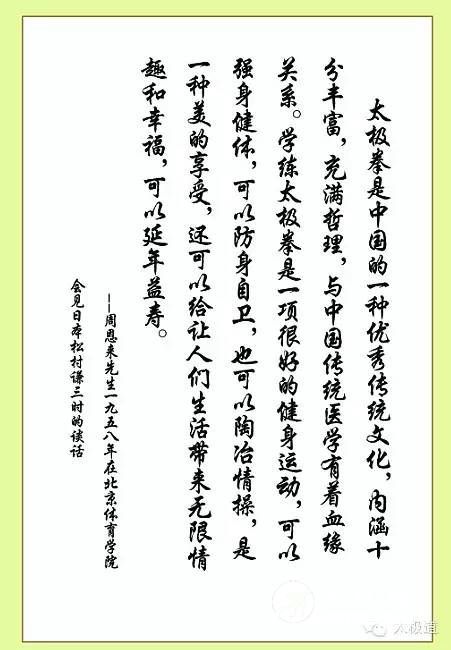 太极拳是中国的一种优秀传统文化，内涵十
分丰富，充满哲理，与中国传统医学有着血缘
关系。学练太极拳是一项很好的健身运动，可以
强身健体，可以防身自卫，也可以陶冶情操，是
一种美的享受，还可以给让人们生活带来无限情
趣和幸福，可以延年益寿。
--周恩来先生一九五八年在北京体育学院
会见日本松村谦三时的谈话
太极道